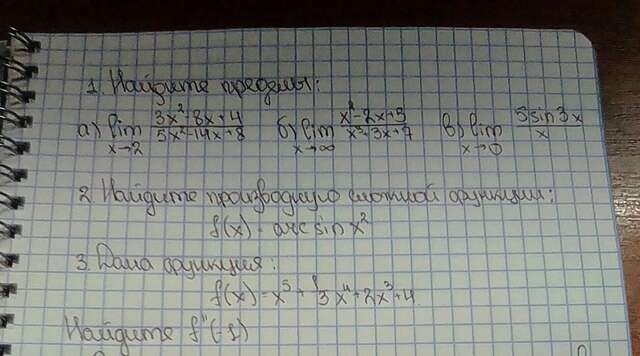 1. Найдите пределы:
а) lim x→2 (3x²-8x+4)/(5x²-14x+8) б) lim x→∞ (x²-2x+3)/(x³+3x+7) в) lim x→0 (5sin3x)/x
2. Найдите производную сложной функции:
f(x) = arcsin x²
3. Дана функция:
f(x) = x⁵ + 3x⁴ + 2x³ + 4
Найдите f''(-1)